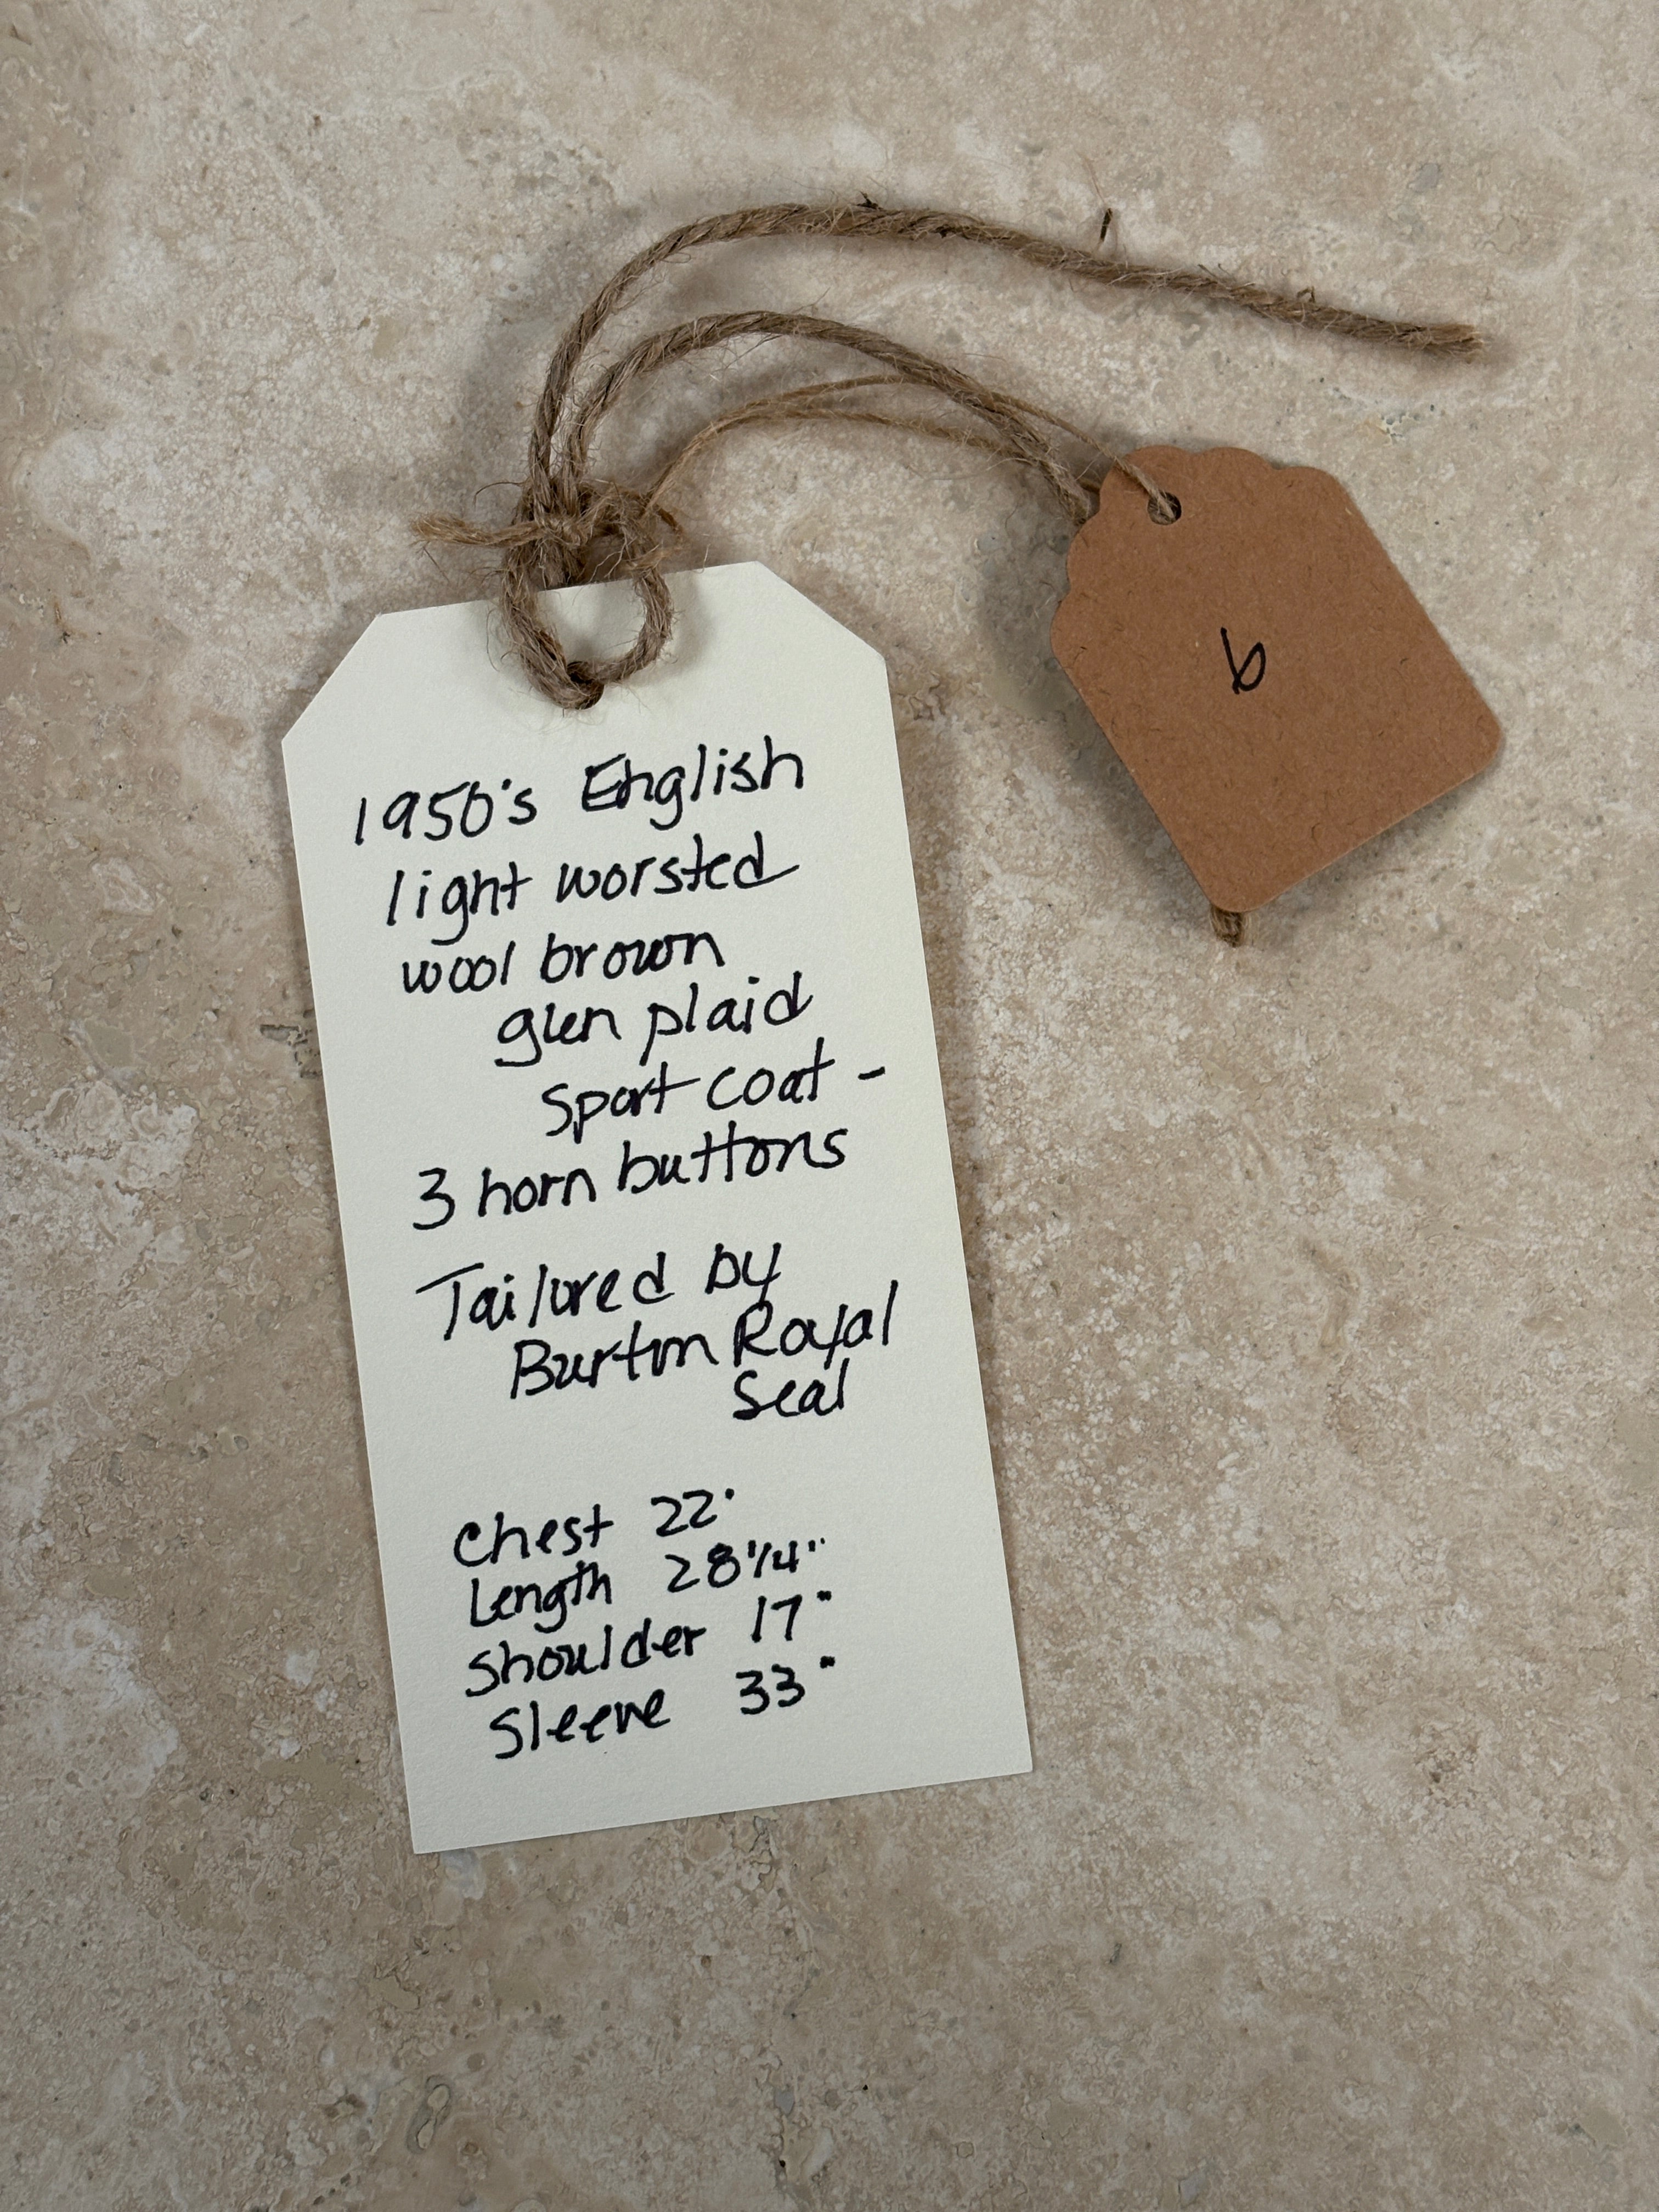 1950's English
light worsted
wool brown
glen plaid
Sport coat -
3 horn buttons
Tailored by
Burton Royal
Seal
Chest 22"
Length 28 1/4"
Shoulder 17"
Sleeve 33"
b